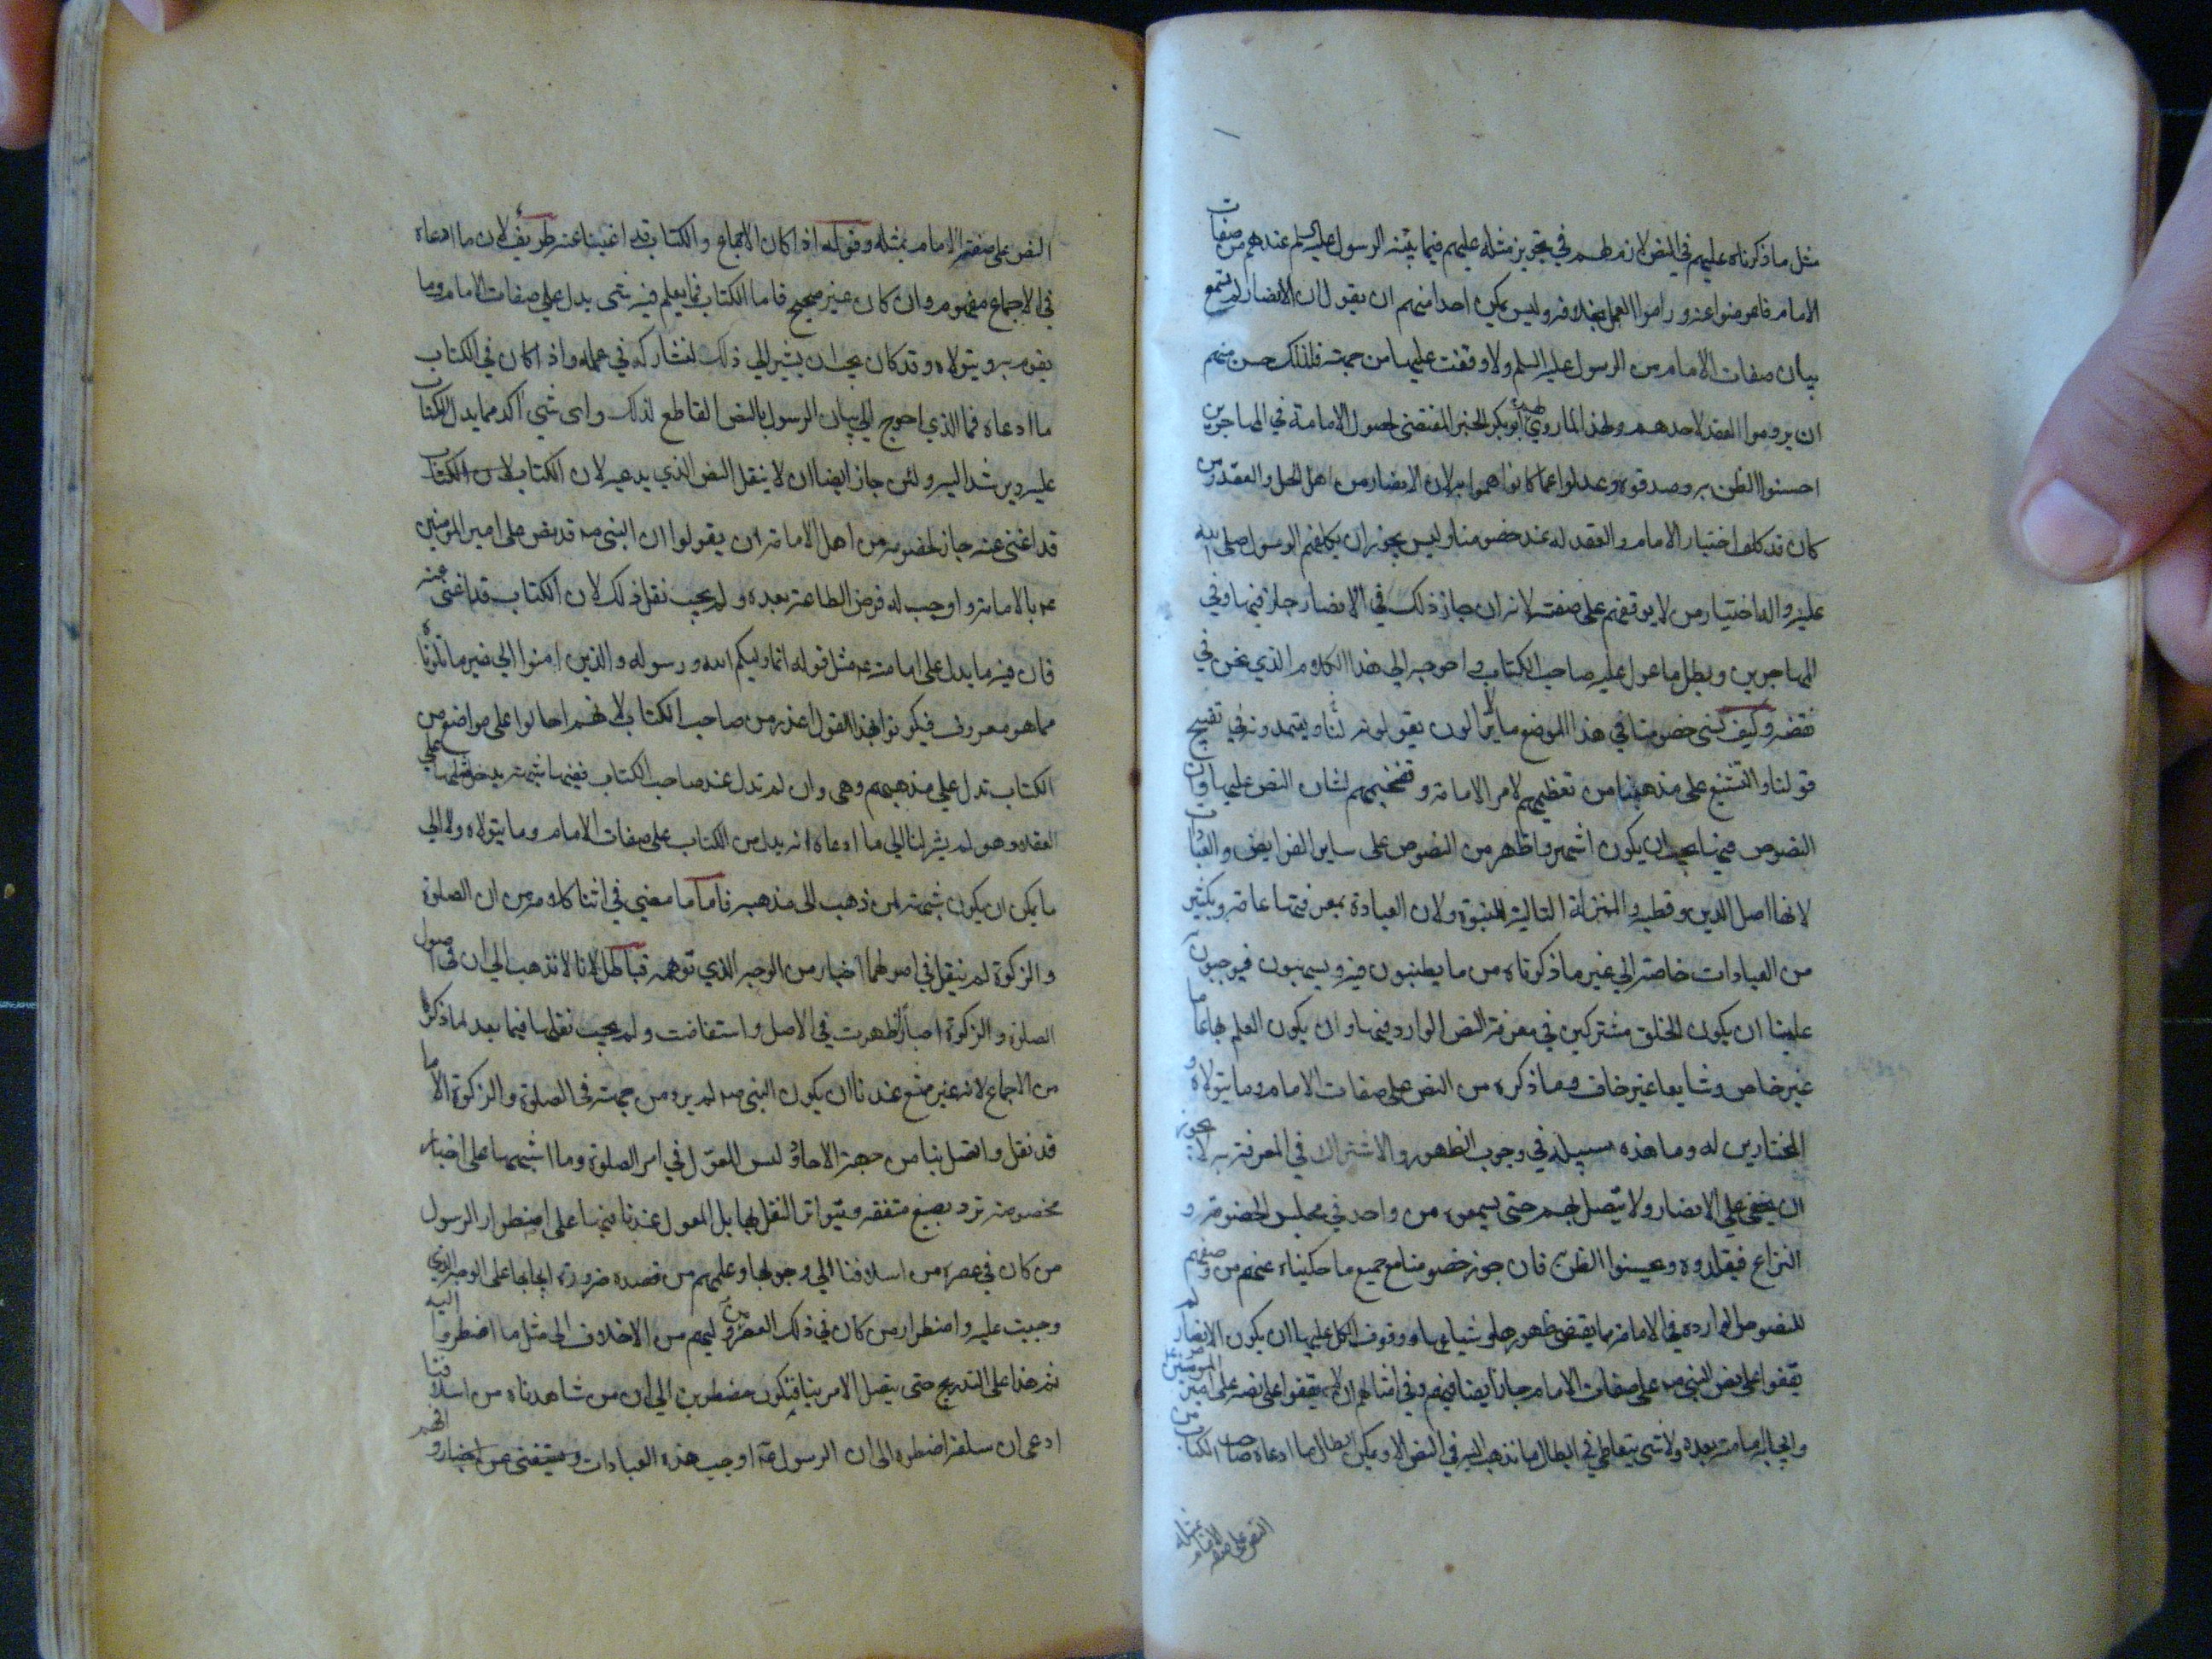 مثل ما ذكرناه عليهم في النص لازم لهم في تجويز مثله عليهم فيما بيّنه الرسول عليه السلم عندهم من صفات
الامام فاعرضوا عنه وراموا العمل بخلافه وليس يمكن احدا منهم ان يقول ان الانصار لم تسمع
بيان صفات الامام من الرسول عليه السلم ولا وقفت عليها من جهته فلذلك حسن منهم
ان يروموا العقد لاحدهم ولهذا لما روي لهم أبو بكر الخبر المقتضي لحصول الامامة في المهاجرين
احسنوا الظن به وصدقوه وعدلوا عما كانوا هموا به لان الانصار من اهل الحل والعقد ومن
كان قد كلف اختيار الامام والعقد له عند خصومنا وليس يجوز ان يكلفهم الرسول صلى الله
عليه واله اختيار من لا يوقفهم على صفته لانه ان جاز ذلك في الانصار جاز فيها وفي
المهاجرين وبطل ما عول عليه صاحب الكتاب واحوجه الى هذا الكلام الذي نحن في
نقضه وكيف نسى خصومنا في هذا الموضع ما لا يزالون يقولونه لنا ويعتمدونه في تقبيح
قولنا والتشنيع على مذهبنا من تعظيمهم لامر الامامة وتفخيمهم لشان النص عليها وان
النصوص فيها يجب ان يكون اشهر واظهر من النصوص على ساير الفرايض والعبادات
لانها اصل الدين وقطبه والمنزلة التالية للنبوة ولان العبادة بمعرفتها عامة وبكثير
من العبادات خاصة الي غير ما ذكرناه من ما يطنبون فيه ويسهبون فيوجبون
علينا ان يكون الخلق مشتركين في معرفة النص الوارد فيها وان يكون العلم بها عاما
غير خاص وشايعا غير خاف وما ذكره من النص على صفات الامام وما يتولاه و
المختارين له وما هذه سبيله في وجوب الظهور والاشتراك في المعرفة به لا يجوز
ان يخفى علي الانصار ولا يتصل بهم حتى يسمعوه من واحد في مجلس الخصومة و
النزاع فيقلدوه ويحسنوا الظن به فان جوز خصومنا مع جميع ما حكيناه عنهم من وصفهم
للنصوص الواردة في الامامة بما يقتضي ظهورها وشياعها ووقوف الكل عليها ان يكون الانصار لم
يقفوا على نص النبي صه على صفات الامام جاز ايضا فيهم وفي امثالهم ان لا يقفوا على نصه على امير المومنين ع
وايجابه امامته بعده ولا شي يتعاطى في ابطال ما نذهب اليه في النص الا ويمكن ابطال ما ادعاه صاحب الكتاب من
النص على صفة الامام بمثله
النص على صفة الامام بمثله وقوله اذا كان الاجماع والكتاب قد اغنيا عنه طريف لان ما ادعاه
في الاجماع مفهوم وان كان غير صحيح فاما الكتاب فما يعلم فيه شي يدل على صفات الامام وما
يقوم به ويتولاه وقد كان يجب ان يشير الي ذلك لنشاركه في عمله واذا كان في الكتاب
ما ادعاه فما الذي احوج الي بيان الرسول بالنص القاطع لذلك واى شي آكد مما يدل الكتاب
عليه ويرشد اليه ولئن جاز ايضا ان لا ينقل النص الذي يدعيه لان الكتاب
قد اغنى عنه جاز لخصومه من اهل الامامة ان يقولوا ان النبي صه قد نص على امير المومنين
عه بالامامة واوجب له فرض الطاعة بعده ولم يجب نقل ذلك لان الكتاب قد اغنى عنه
فان فيه ما يدل على امامته عه مثل قوله انما وليكم الله ورسوله والذين امنوا الي غير ما تلوناه
مما هو معروف فيكونوا بهذا القول اعذر من صاحب الكتاب لانهم احالوا على مواضع من
الكتاب تدل علي مذهبهم وهي وان لم تدل عند صاحب الكتاب ففيها شبهة يدخل مثلها على
العقلاء وهو لم يشر لنا الي ما ادعاه انه يدل من الكتاب على صفات الامام وما يتولاه ولا الي
ما يمكن ان يكون شبهة لمن ذهب الى مذهبه فاما ما مضي في اثناء كلامه من ان الصلوة
والزكوة لم ينقل في اصولهما اخبار من الوجه الذي توهمه فباطل لانا لا نذهب الي ان في اصول
الصلوة والزكوة اخبارا ظهرت في الاصل واستفاضت ولم يجب نقلها فيما بعد لما ذكره
من الاجماع لانه غير ممتنع عندنا ان يكون النبي صه لم يرد من جهته في الصلوة والزكوة الا ما
قد نقل واتصل بنا من جهة الاحاد وليس المعوّل في امر الصلوة وما اشبهها على اخبار
مخصوصة ترد بصيغ متفقه ويتواتر النقل بها بل المعول عندنا فيها على اضطرار الرسول
من كان في عصره من اسلافنا الي وجوبها وعلمهم من قصده ضرورة ايجابها على الوجه الذي
وجبت عليه واضطرار من كان في ذلك العصر من وليهم من الاخلاف الى مثل ما اضطروا اليه
ثم هذا على التدريج حتى يتصل الامر بنا فنكون مضطرين الي ان من شاهدناه من اسلافنا
ادعى ان سلفه اضطره الى ان الرسول صه اوجب هذه العبادات